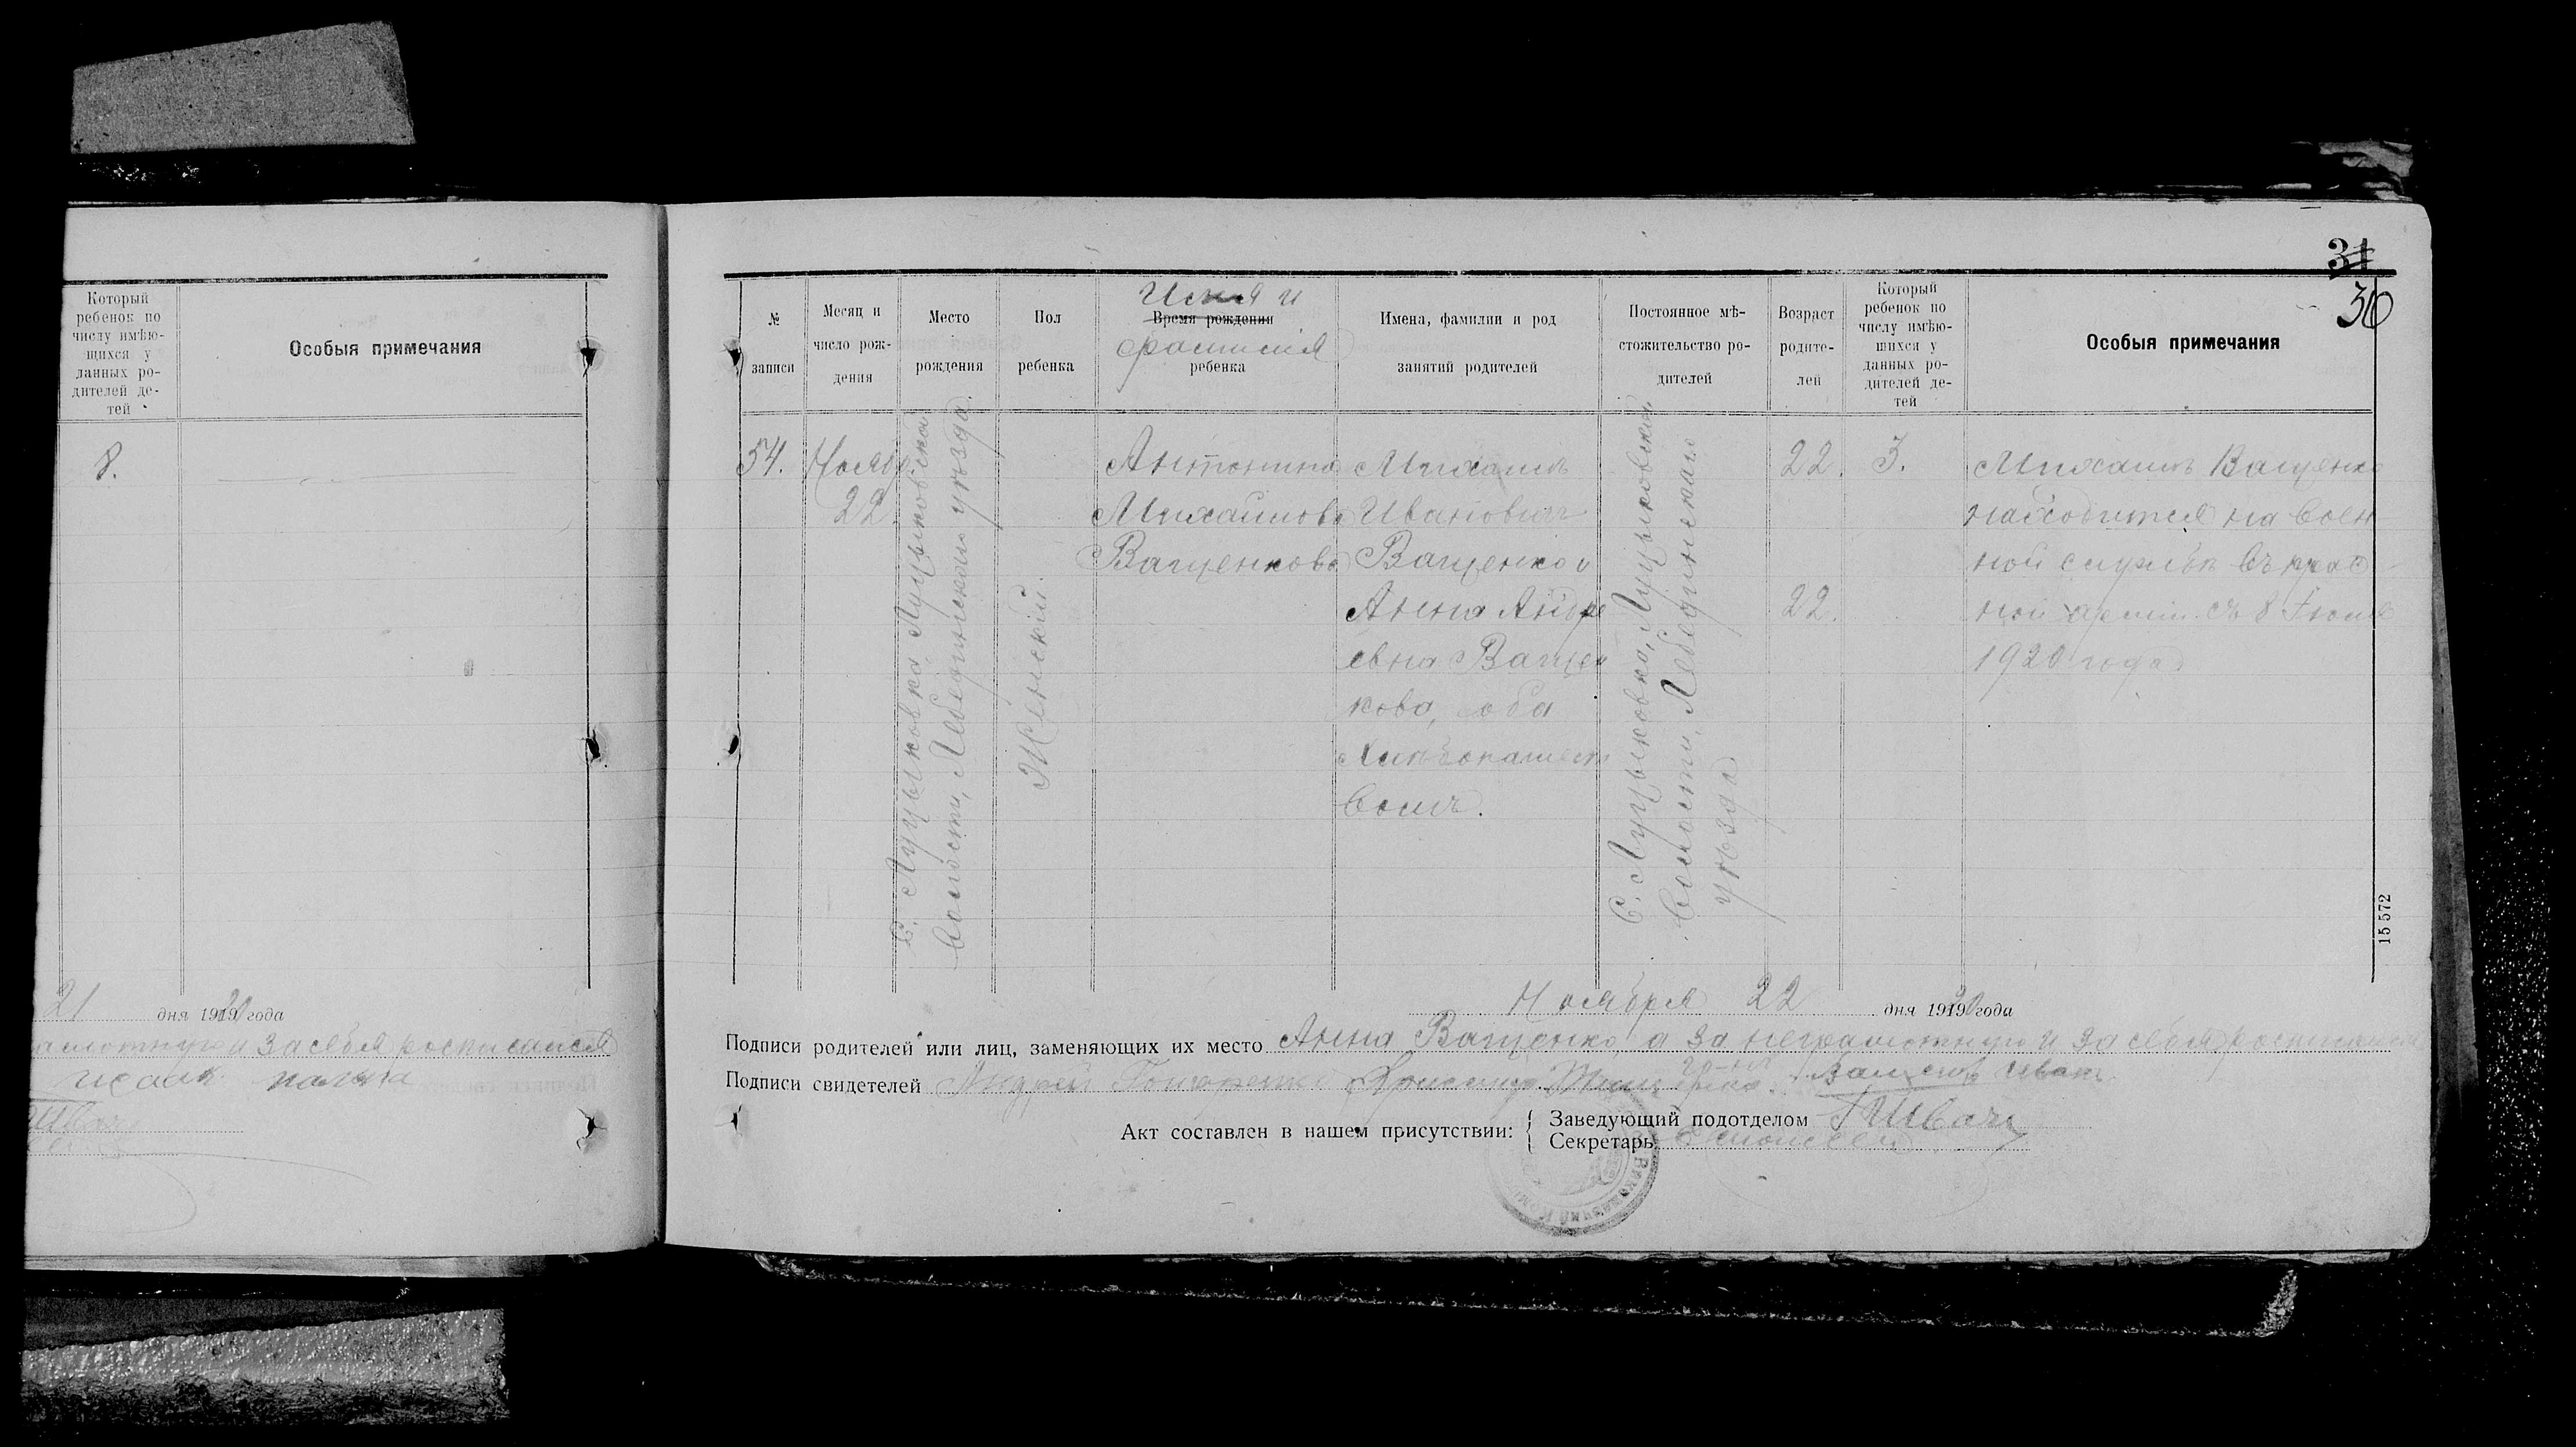 Который
ребенок по
числу имѣю-
щихся у
данных ро-
дителей де-
тей
Особыя примечания
8.
21 дня 1920 года
и за себя росписался
31
36
№
записи
Месяц и
число рож-
дения
Место
рождения
Пол
ребенка
Имя и
Время рождения
фамилия
ребенка
Имена, фамилии и род
занятий родителей
Постоянное мѣ-
стожительство ро-
дителей
Возраст
родите-
лей
Который
ребенок по
числу имѣю-
шихся у
данных ро-
дителей де-
тей
Особыя примечания
54.
Ноябр
22.
С. Луцыковка Луцыковской
волости, Лебединского уѣзда.
Женский.
Антонина
Михайлова
Ващенкова
Михаил
Иванович
Ващенко и
Анна Андре
евна Ващен
кова, оба
Хлѣбопашест
вомъ.
С. Луцыковка, Луцыковской
волости, Лебединскаго
уѣзда
22.
22.
3.
Михаилъ Ващенко
находится на воен
ной службѣ въ крас
ной арміи съ 8 Іюля
1920 года
15572
Ноября 22 дня 1920 года
Подписи родителей или лиц, заменяющих их место Анна Ващенко а за неграмотную и за себя росписался
Подписи свидетелей Андрей Гончаренко Иван
Акт составлен в нашем присутствии:
Заведующий подотделом
Секретарь